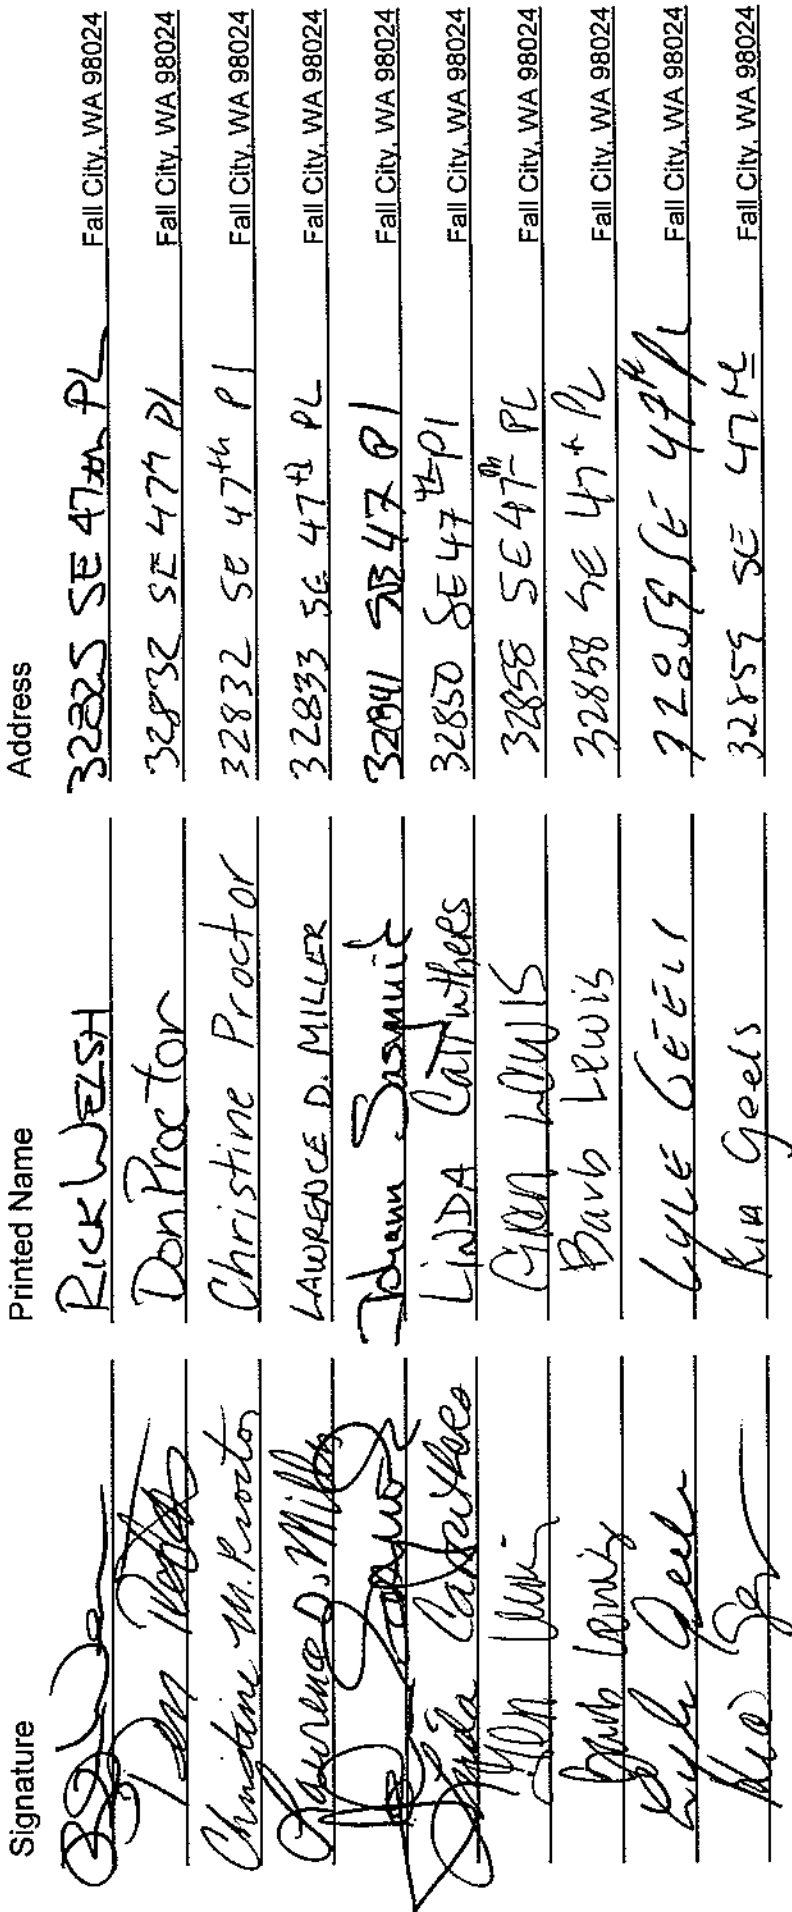 Signature Printed Name Address
RICK WELSH 32825 SE 47th PL Fall City, WA 98024
Don Proctor 32832 SE 47th Pl Fall City, WA 98024
Christine M. Proctor Christine Proctor 32832 SE 47th Pl Fall City, WA 98024
Lawrence D. Miller LAWRENCE D. MILLER 32833 SE 47th PL Fall City, WA 98024
Johann 32841 SE 47 Pl Fall City, WA 98024
Linda Carruthers LINDA Carruthers 32850 SE 47th Pl Fall City, WA 98024
Glen Lewis Glen Lewis 32858 SE 47th PL Fall City, WA 98024
Barb Lewis Barb Lewis 32858 SE 47th PL Fall City, WA 98024
Lyle Geels LYLE GEELS 32859 SE 47th PL Fall City, WA 98024
Kim Geels 32859 SE 47th Fall City, WA 98024